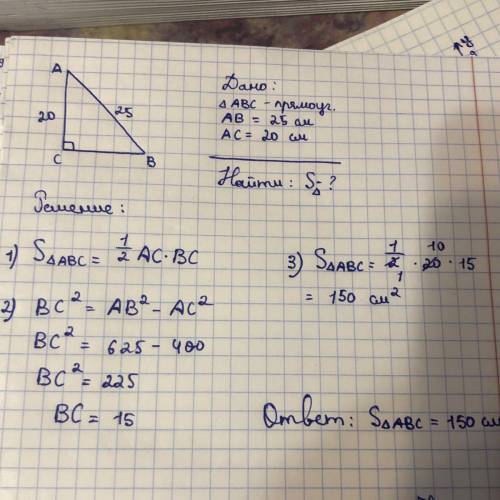 A
20
25
C
B
Дано:
△ABC - прямоуг.
AB = 25 см
AC = 20 см
Найти: S△ - ?
Решение:
1) S△ABC = 1/2 AC · BC
2) BC² = AB² - AC²
BC² = 625 - 400
BC² = 225
BC = 15
3) S△ABC = 1/2 · 20 · 15
1
10
= 150 см²
Ответ: S△ABC = 150 см